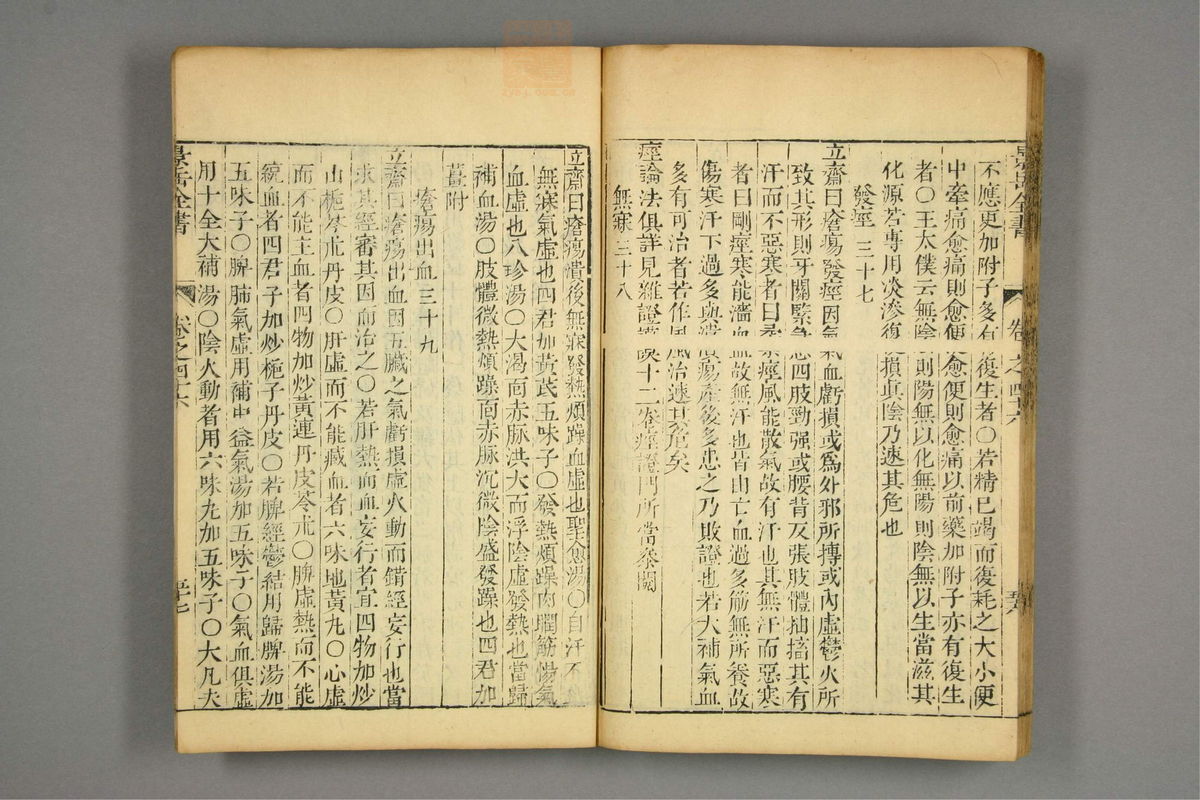 不應更加附子多有復生者○若精已竭而復耗之大小便
中牽痛愈痛則愈便愈便則愈痛以前藥加附子亦有復生
者○王太僕云無陰則陽無以化無陽則陰無以生當滋其
化源若專用淡滲復損真陰乃速其危也
發痙 三十七
立齋曰瘡瘍發痙因氣血虧損或爲外邪所搏或內虛鬱火所
致其形則牙關緊急四肢勁强或腰背反張肢體抽搐其有
汗而不惡寒者曰柔痙風能散氣故有汗也其無汗而惡寒
者曰剛痙寒能濇血故無汗也皆由亡血過多筋無所養故
傷寒汗下過多與潰瘍產後多患之乃敗證也若大補氣血
多有可治者若作風治速其危矣
痙論法俱詳見雜證謨十二卷痙證門所當參閱
無寐 三十八
景岳全書
卷之四六
立齋曰瘡瘍潰後無寐發熱煩躁血虛也聖愈湯○自汗不
無寐氣虛也四君加黃芪五味子○發熱煩躁肉瞤筋惕氣
血虛也八珍湯○大渴面赤脉洪大而浮陰虛發熱也當歸
補血湯○肢體微熱煩躁面赤脉沉微陰盛發躁也四君加
薑附
瘡瘍出血三十九
立齋曰瘡瘍出血因五臟之氣虧損虛火動而錯經妄行也當
求其經審其因而治之○若肝熱而血妄行者宜四物加炒
山梔芩朮丹皮○肝虛而不能藏血者六味地黃丸○心虛
而不能主血者四物加炒黃連丹皮苓朮○脾虛熱而不能
統血者四君子加炒梔子丹皮○若脾經鬱結用歸脾湯加
五味子○脾肺氣虛用補中益氣湯加五味子○氣血俱虛
用十全大補湯○陰火動者用六味丸加五味子○大凡失
景岳全書
卷之四六